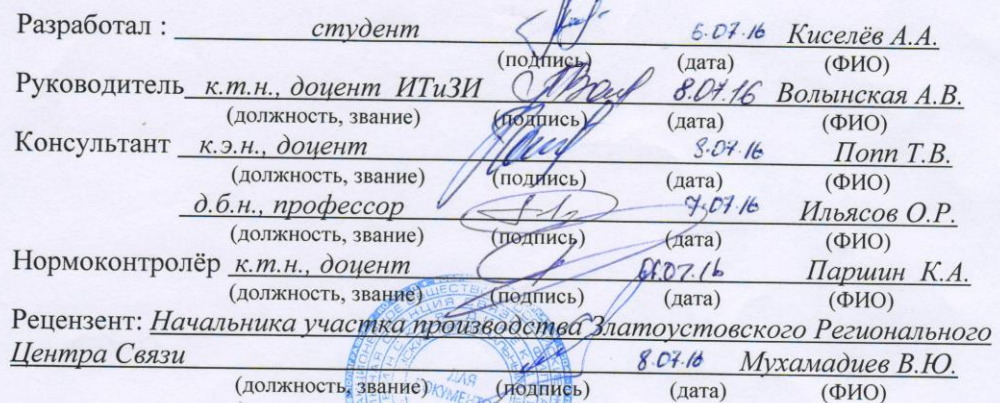 Разработал : студент 6.07.16 Киселёв А.А.
(подпись) (дата) (ФИО)
Руководитель к.т.н., доцент ИТиЗИ 8.07.16 Волынская А.В.
(должность, звание) (подпись) (дата) (ФИО)
Консультант к.э.н., доцент 8.07.16 Попп Т.В.
(должность, звание) (подпись) (дата) (ФИО)
д.б.н., профессор 7.07.16 Ильясов О.Р.
(должность, звание) (подпись) (дата) (ФИО)
Нормоконтролёр к.т.н., доцент Паршин К.А.
(должность, звание) (подпись) (дата) (ФИО)
Рецензент: Начальника участка производства Златоустовского Регионального
Центра Связи 8.07.16 Мухамадиев В.Ю.
(должность, звание) (подпись) (дата) (ФИО)
ДЛЯ